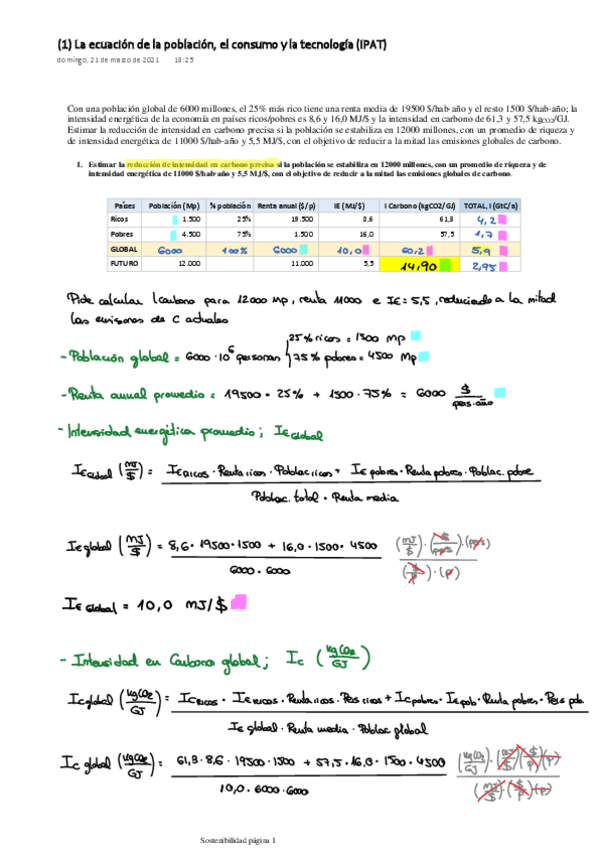 (1) La ecuación de la población, el consumo y la tecnología (IPAT)
domingo, 21 de marzo de 2021 13:25
Con una población global de 6000 millones, el 25% más rico tiene una renta media de 19500 $/hab·año y el resto 1500 $/hab·año; la
intensidad energética de la economía en países ricos/pobres es 8,6 y 16,0 MJ/$ y la intensidad en carbono de 61,3 y 57,5 kgCO2/GJ.
Estimar la reducción de intensidad en carbono precisa si la población se estabiliza en 12000 millones, con un promedio de riqueza y
de intensidad energética de 11000 $/hab·año y 5,5 MJ/$, con el objetivo de reducir a la mitad las emisiones globales de carbono.
1. Estimar la reducción de intensidad en carbono precisa si la población se estabiliza en 12000 millones, con un promedio de riqueza y de
intensidad energética de 11000 $/hab·año y 5,5 MJ/$, con el objetivo de reducir a la mitad las emisiones globales de carbono.
Países Población (Mp) % población Renta anual ($/p) IE (MJ/$) I Carbono (kgCO2/GJ) TOTAL, I (GtC/a)
Ricos 1.500 25% 19.500 8,6 61,3 4,2
Pobres 4.500 75% 1.500 16,0 57,5 1,7
GLOBAL 6000 100% 6000 10,0 60,2 5,9
FUTURO 12.000 11.000 5,5 14,90 2,95
Pide calcular Icarbono para 12000 Mp, renta 11000 e IE = 5,5, reduciendo a la mitad
las emisiones de C actuales
- Población global = 6000·10⁶ personas 25% ricos = 1500 Mp
75% pobres = 4500 Mp
- Renta anual promedio = 19500 · 25% + 1500 · 75% = 6000 $/pers·año
- Intensidad energética promedio; IE global
IE Global (MJ/$) = IE RICOS · Renta ricos · Poblac ricos + IE pobres · Renta pobres · Poblac. pobre
Poblac. total · Renta media
IE global (MJ/$) = 8,6 · 19500 · 1500 + 16,0 · 1500 · 4500 (MJ/$) · ($/pers) · (pers)
6000 · 6000 ($/p) · (p)
IE Global = 10,0 MJ/$
- Intensidad en Carbono global; Ic (kgCO2/GJ)
Ic global (kgCO2/GJ) = Ic RICOS · IE RICOS · Renta ricos · Pers ricos + Ic pobres · IE pob · Renta pobres · Pers pob.
IE global · Renta media · Poblac global
Ic global (kgCO2/GJ) = 61,3 · 8,6 · 19500 · 1500 + 57,5 · 16,0 · 1500 · 4500 (kgCO2/GJ) · (MJ/$) ($/p) (p)
10,0 · 6000 · 6000 (MJ/$) · ($/p) · (p)
Sostenibilidad página 1